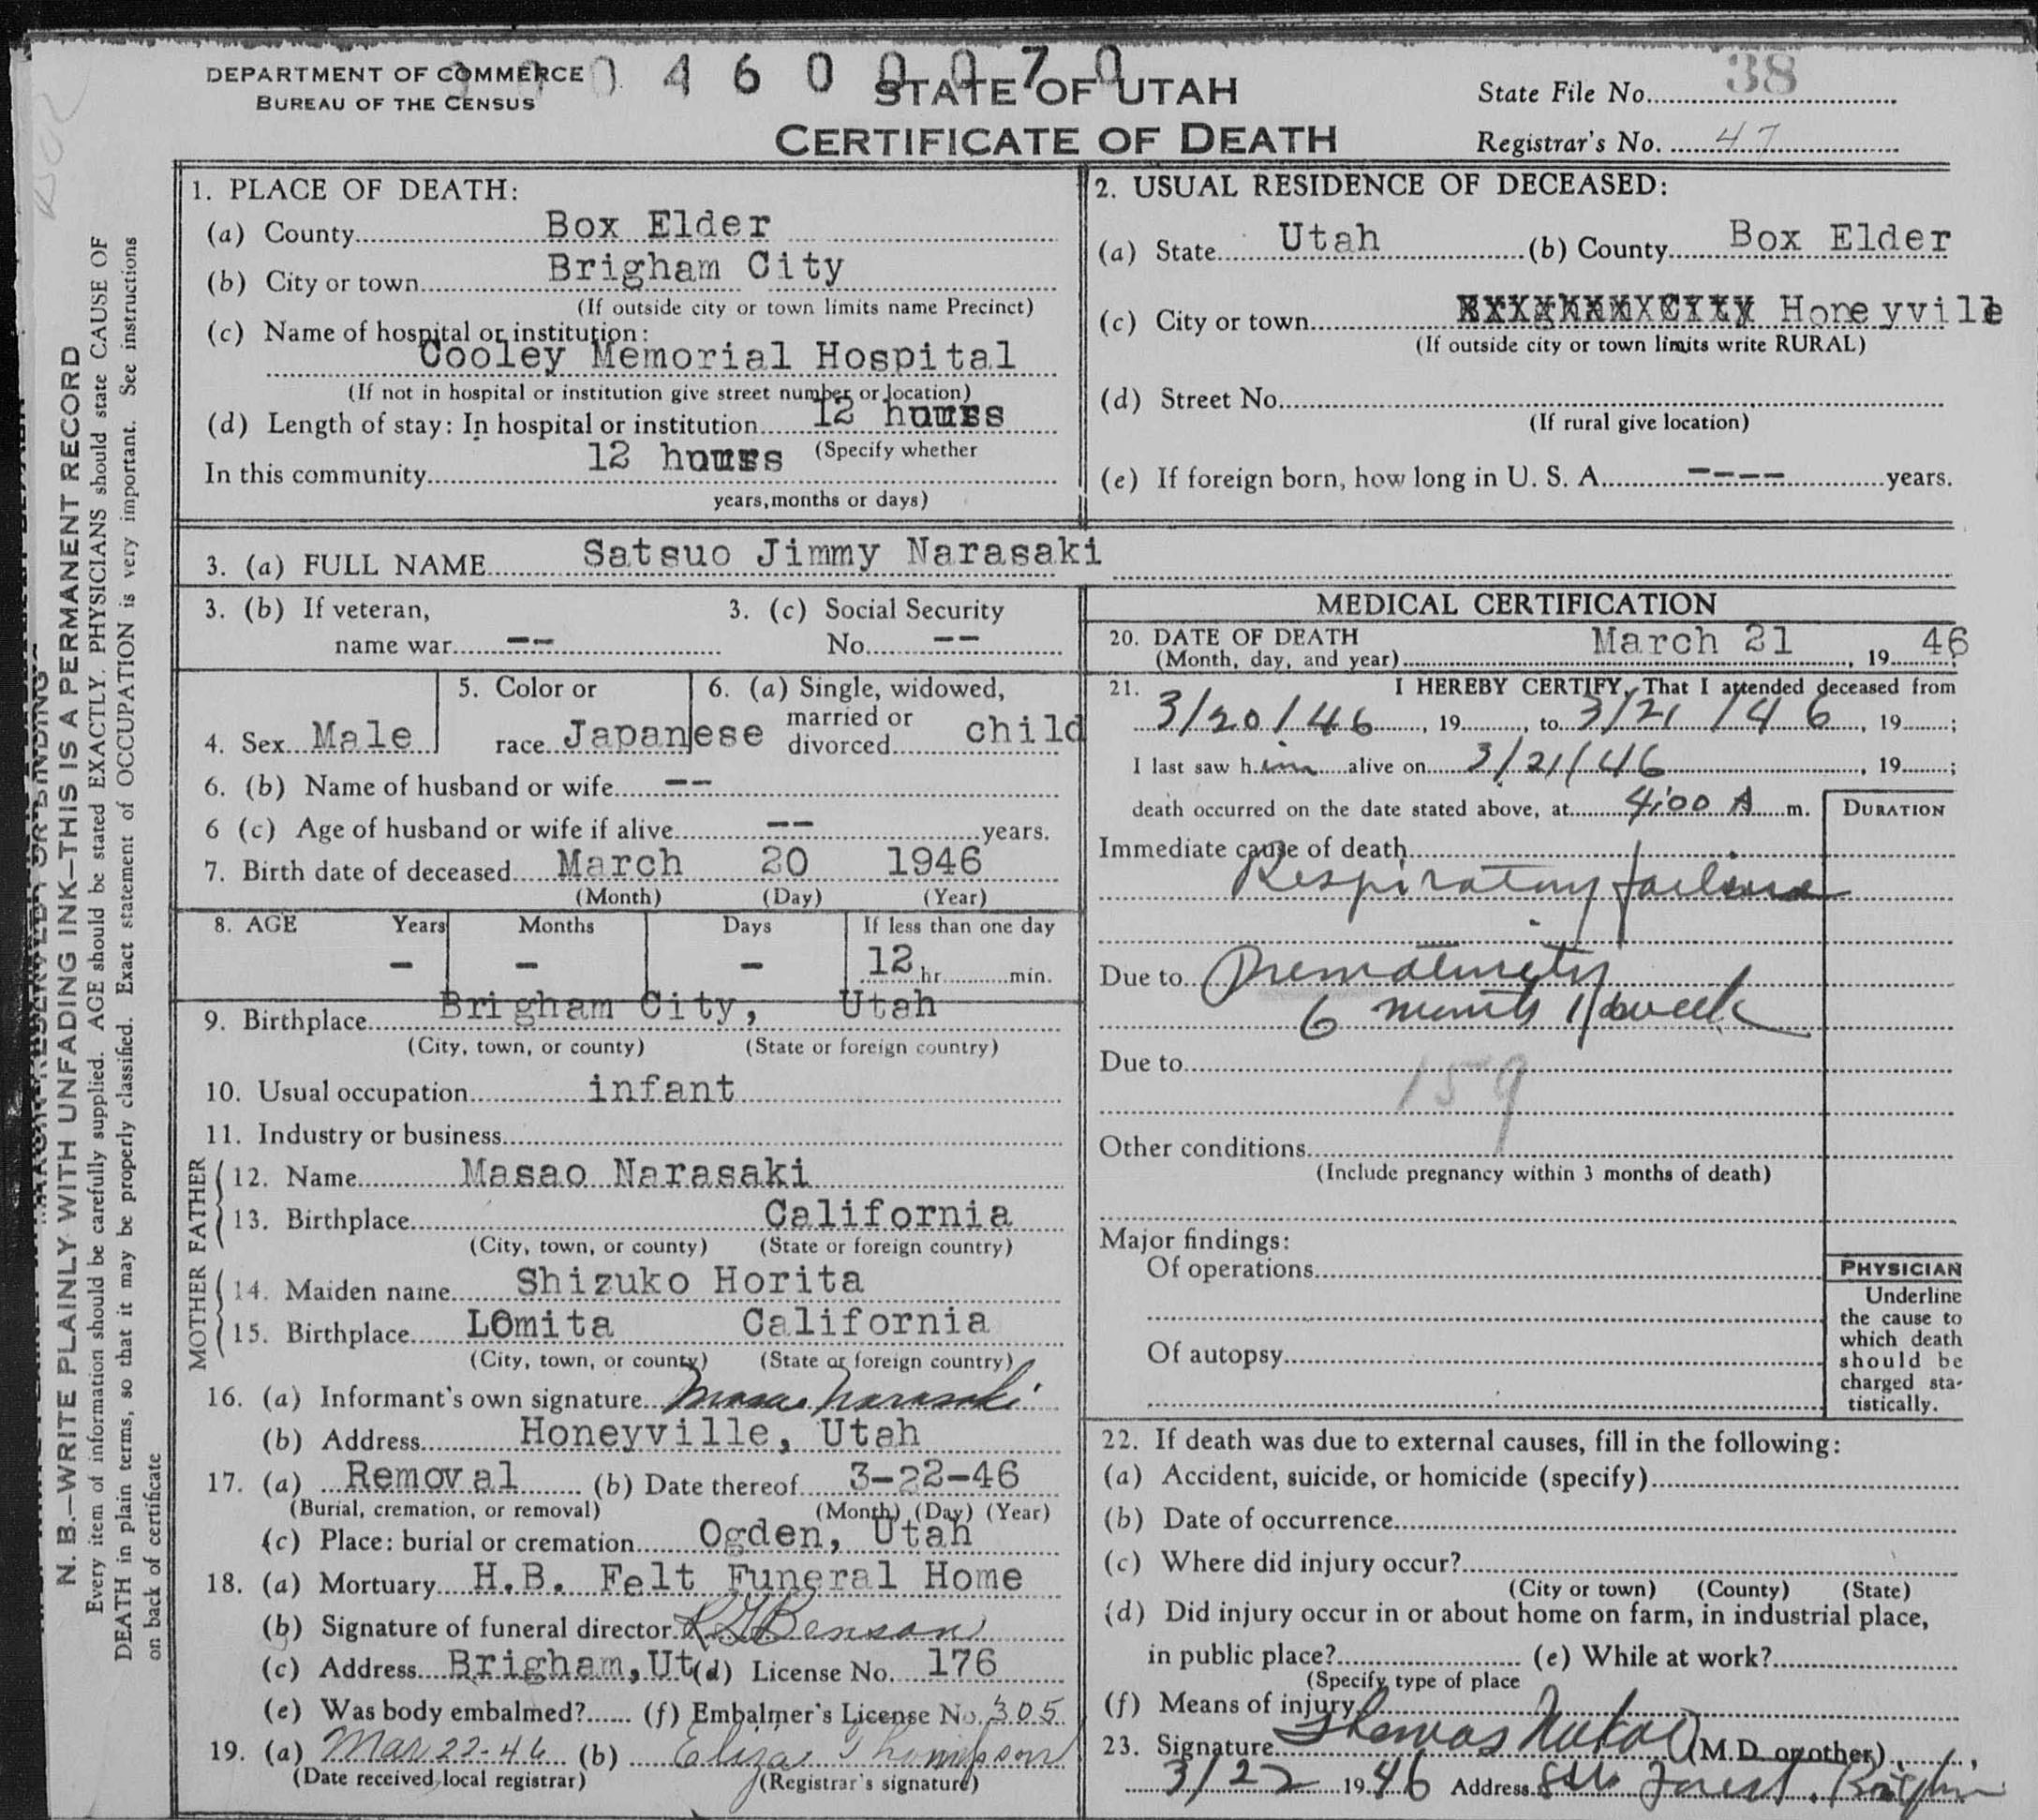 DEPARTMENT OF COMMERCE
BUREAU OF THE CENSUS
0 4 6 0 0 0 7 0
STATE OF UTAH
CERTIFICATE OF DEATH
State File No. 38
Registrar's No. 47
1. PLACE OF DEATH:
(a) County Box Elder
(b) City or town Brigham City
(If outside city or town limits name Precinct)
(c) Name of hospital or institution:
Cooley Memorial Hospital
(If not in hospital or institution give street number or location)
(d) Length of stay: In hospital or institution 12 hours
(Specify whether
In this community 12 hours
years, months or days)
2. USUAL RESIDENCE OF DECEASED:
(a) State Utah (b) County Box Elder
(c) City or town Honeyville
(If outside city or town limits write RURAL)
(d) Street No.
(If rural give location)
(e) If foreign born, how long in U. S. A. ---- years.
3. (a) FULL NAME Satsuo Jimmy Narasaki
3. (b) If veteran,
name war --
3. (c) Social Security
No. --
4. Sex Male
5. Color or
race Japanese
6. (a) Single, widowed,
married or
divorced child
6. (b) Name of husband or wife --
6 (c) Age of husband or wife if alive -- years.
7. Birth date of deceased March 20 1946
(Month) (Day) (Year)
8. AGE Years Months Days If less than one day
- - - 12 hr. min.
9. Birthplace Brigham City, Utah
(City, town, or county) (State or foreign country)
10. Usual occupation infant
11. Industry or business
FATHER
12. Name Masao Narasaki
13. Birthplace California
(City, town, or county) (State or foreign country)
MOTHER
14. Maiden name Shizuko Horita
15. Birthplace LOmita California
(City, town, or county) (State or foreign country)
16. (a) Informant's own signature Masao Narasaki
(b) Address Honeyville, Utah
17. (a) Removal (b) Date thereof 3-22-46
(Burial, cremation, or removal) (Month) (Day) (Year)
(c) Place: burial or cremation Ogden, Utah
18. (a) Mortuary H.B. Felt Funeral Home
(b) Signature of funeral director Benson
(c) Address Brigham, Ut (d) License No. 176
(e) Was body embalmed? (f) Embalmer's License No. 305
19. (a) Mar 22-46 (b) Eliza Thompson
(Date received local registrar) (Registrar's signature)
MEDICAL CERTIFICATION
20. DATE OF DEATH
(Month, day, and year) March 21, 19 46
21. I HEREBY CERTIFY, That I attended deceased from
3/20/46, 19 , to 3/21/46, 19 ;
I last saw him alive on 3/21/46, 19 ;
death occurred on the date stated above, at 4:00 A m.
DURATION
Immediate cause of death
Respiratory failure
Due to Prematurity
6 months 1 week
Due to
159
Other conditions
(Include pregnancy within 3 months of death)
Major findings:
Of operations
Of autopsy
PHYSICIAN
Underline
the cause to
which death
should be
charged sta-
tistically.
22. If death was due to external causes, fill in the following:
(a) Accident, suicide, or homicide (specify)
(b) Date of occurrence
(c) Where did injury occur?
(City or town) (County) (State)
(d) Did injury occur in or about home on farm, in industrial place,
in public place? (e) While at work?
(Specify type of place
(f) Means of injury
23. Signature Thomas (M.D. or other)
3/22 19 46 Address Forest, Brigham
N. B.—WRITE PLAINLY WITH UNFADING INK—THIS IS A PERMANENT RECORD
Every item of information should be carefully supplied. AGE should be stated EXACTLY. PHYSICIANS should state CAUSE OF
DEATH in plain terms, so that it may be properly classified. Exact statement of OCCUPATION is very important. See instructions
on back of certificate